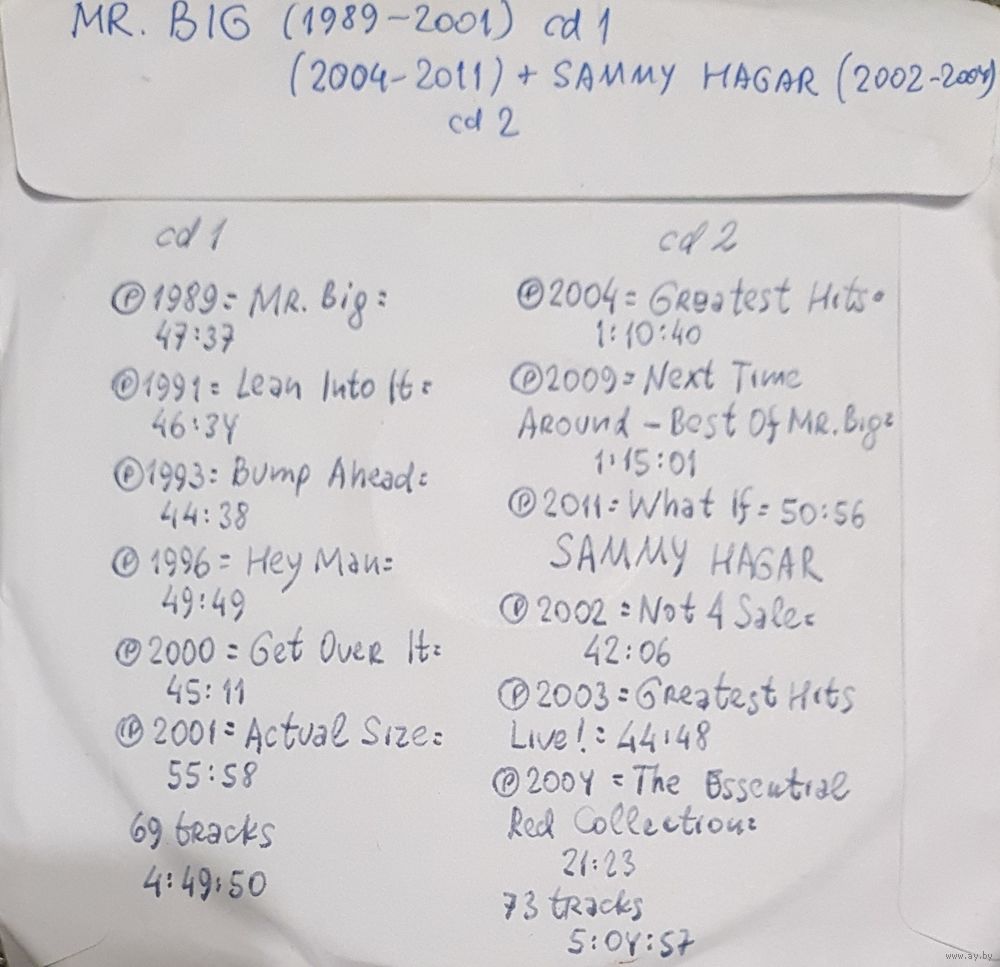 MR. BIG (1989-2001) cd 1
(2004-2011) + SAMMY HAGAR (2002-2004)
cd 2
cd 1
Ⓟ 1989 = MR. Big =
47:37
Ⓟ 1991 = Lean Into It =
46:34
Ⓟ 1993 = Bump Ahead =
44:38
Ⓟ 1996 = Hey Man =
49:49
Ⓟ 2000 = Get Over It =
45:11
Ⓟ 2001 = Actual Size =
55:58
69 tracks
4:49:50
cd 2
Ⓟ 2004 = Greatest Hits =
1:10:40
Ⓟ 2009 = Next Time
Around - Best Of MR. Big =
1:15:01
Ⓟ 2011 = What If = 50:56
SAMMY HAGAR
Ⓟ 2002 = Not 4 Sale =
42:06
Ⓟ 2003 = Greatest Hits
Live! = 44:48
Ⓟ 2004 = The Essential
Red Collection =
21:23
73 tracks
5:04:57
www.ay.by